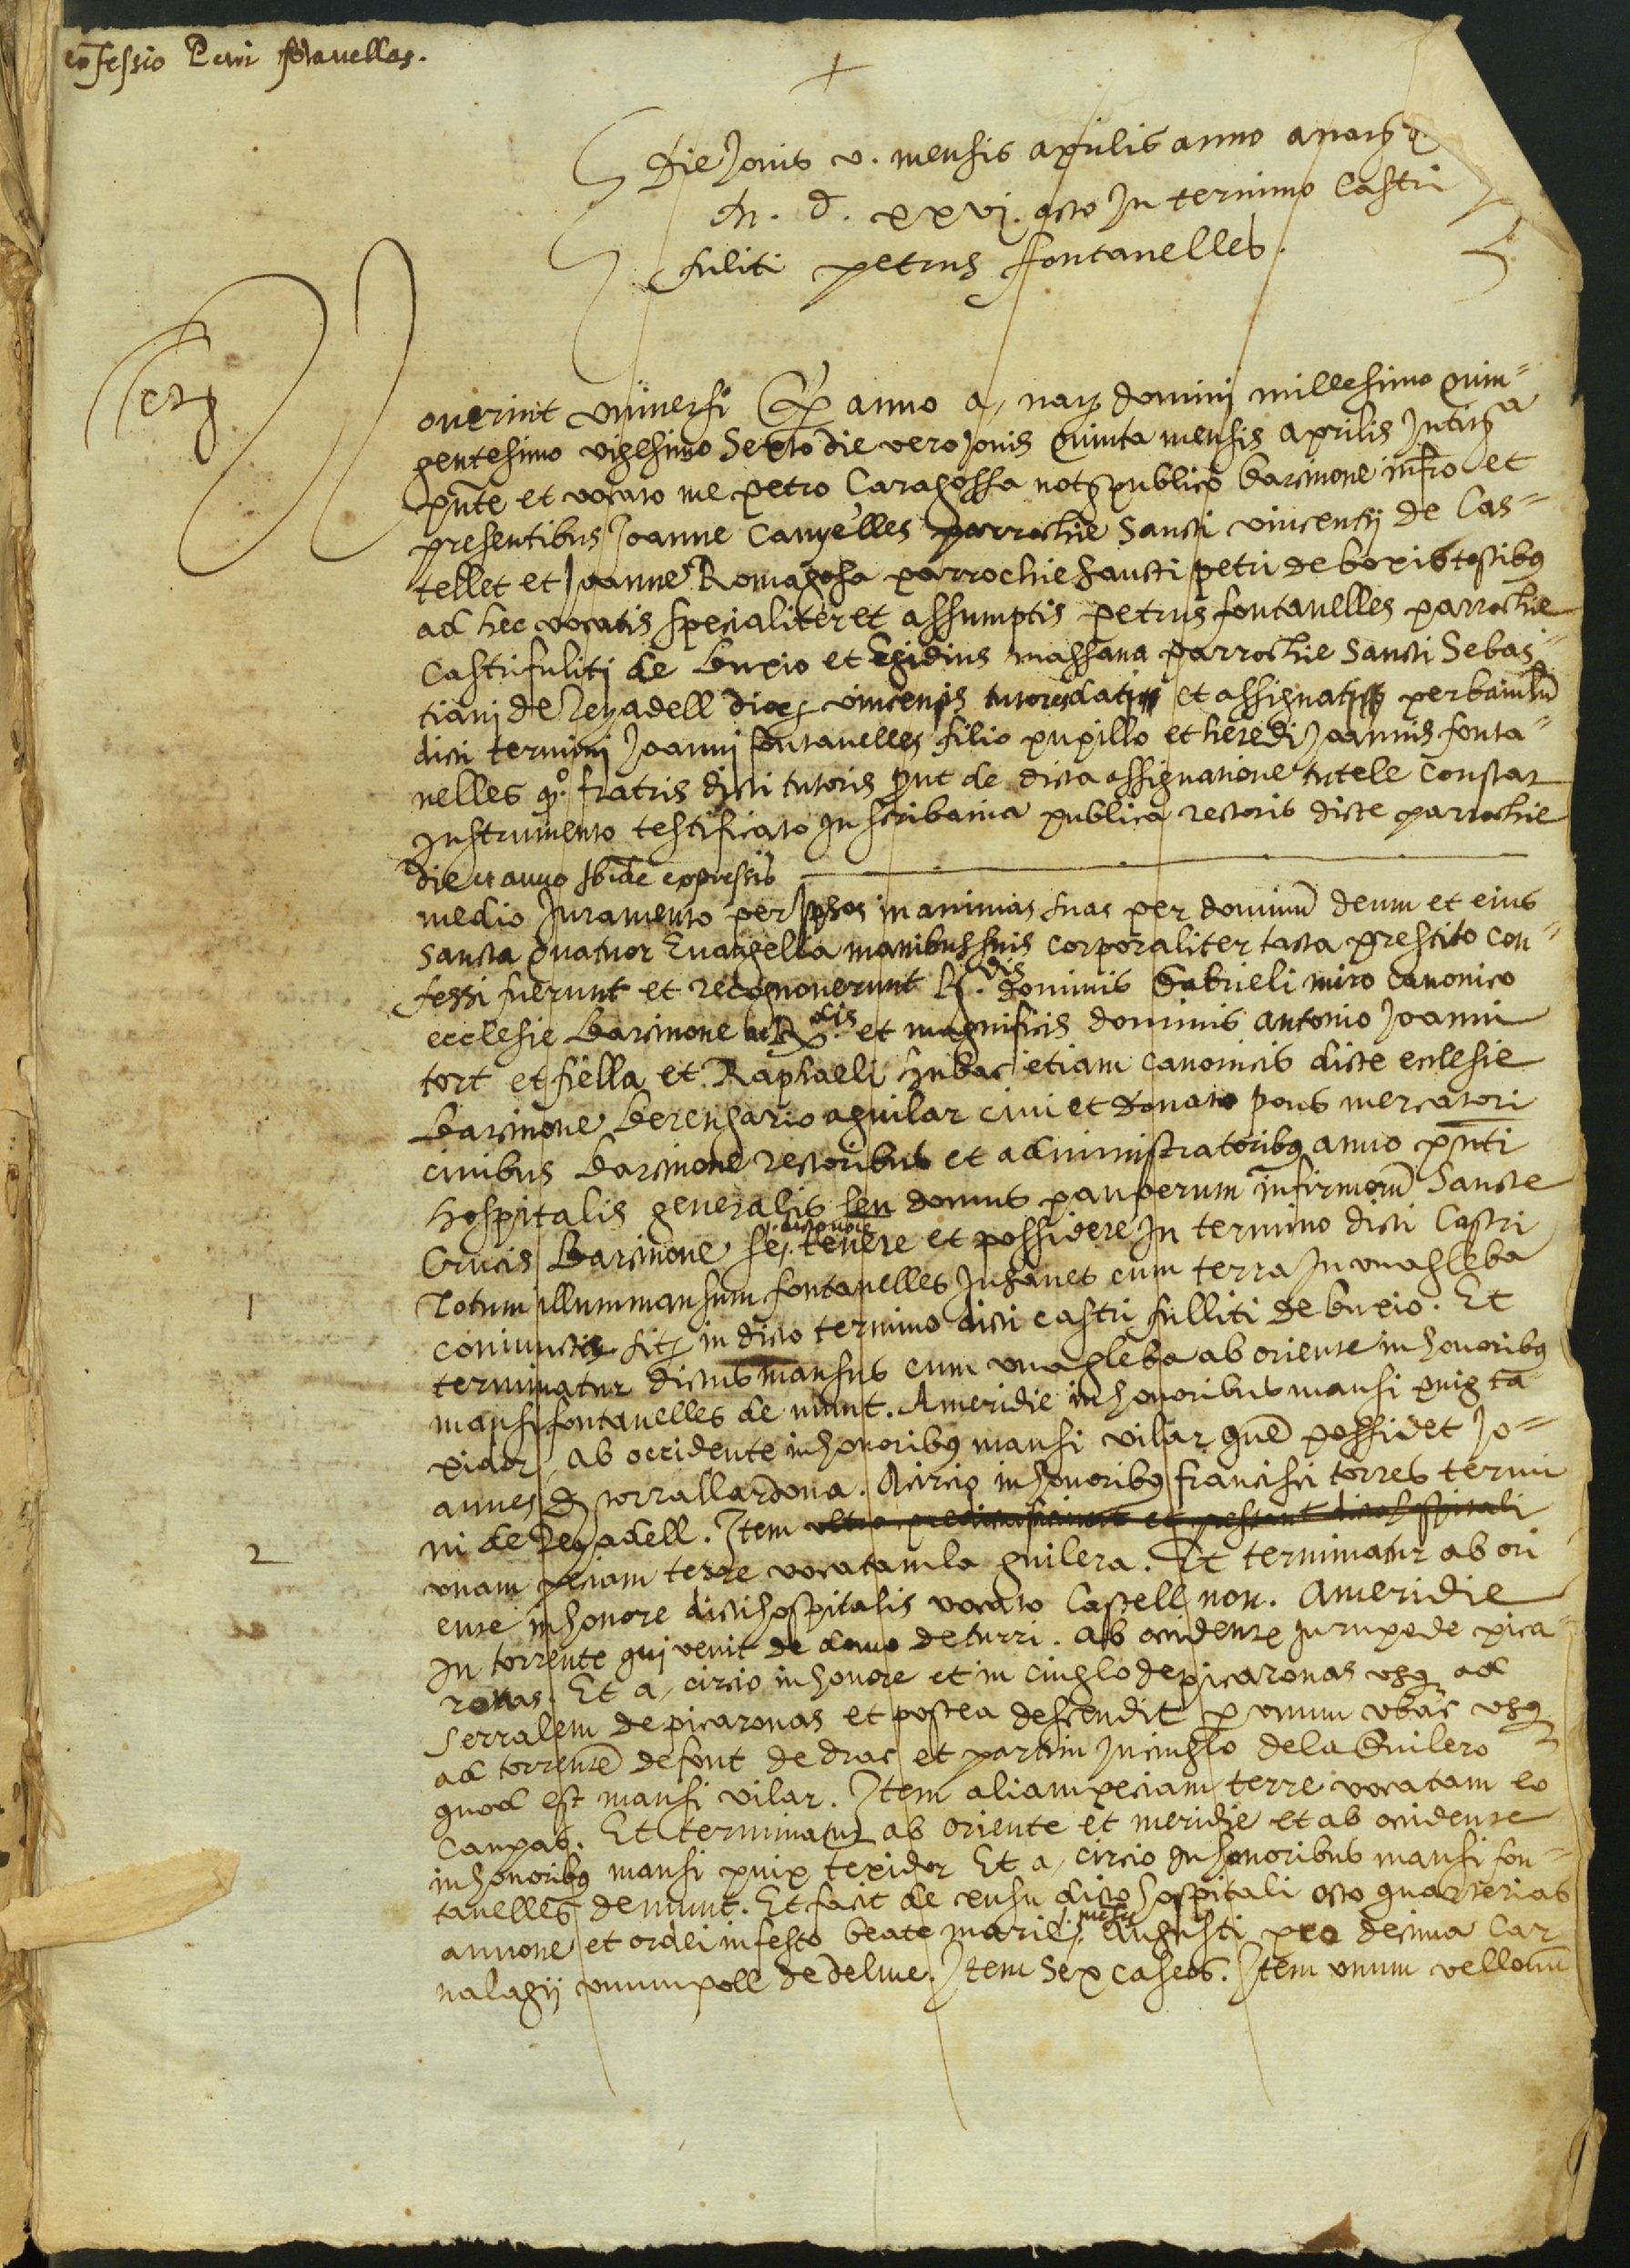 cõfessio Petri fõtanelles.
+
Die Jovis v. mensis aprilis anno a nat.
M. d. xxvj. acto In termino Castri
fuliti petrus ffontanelles.
overint universi Q anno a, nat domini millesimo Quin=
gentesimo vigesimo Sexto die vero Jovis Quinta mensis aprilis
pñte et vocato me petro Caragossa not publico barcinone infro et
presentibus Joanne Canyelles parrochie Sancti vincentij de Cas=
tellet et Joanne Romagosa parrochie Sancti petri de boxis testibus
ad hec vocatis specialiter et assumptis petrus fontanelles parrochie
Castrifuliti de buxio et Egidius massana parrochie Sancti Sebas=
tiani de Regadell dioc vincensis tutores dati et assignati per baiulũ
dicti termini Joanni fontanelles filio pupillo et heredi Joannis fonta=
nelles qº. fratris dicti tutoris put de dicta assignatione tutele constat
Instrumento testificato In scribania publica rectoris dicte parrochie
die et anno Ibidẽ expressis
medio Juramento per Ipsos in animas suas per dominũ deum et eius
Sancta Quatuor Evangelia manibus suis corporaliter tacta prestito con=
fessi fuerunt et recognoverunt R.dis dominis Gabrieli miro canonico
ecclesie barcinone et magnificis dominis antonio Joanni
tort et fiella et Raphaeli Hubac etiam canonicis dicte ecclesie
barcinone berengario aguilar civi et donato pons mercatori
civibus barcinone rectoribus et administratoribus anno pñti
hospitalis generalis seu domus pauperum infirmorũ Sancte
Crucis Barcinone se tenere et possidere In termino dicti Castri
1 Totum illum mansum fontanelles Jusanes cum terra In una gleba
coniunctis sit in dicto termino dicti castri fulliti de buxio. Et
terminatur dictus mansus cum una gleba ab oriente in honoribus
mansi fontanelles de munt. A meridie in honoribus mansi puig ta
xidor, ab occidente in honoribus mansi vilar quẽ possidet Jo=
annes de torrallardona. A circio in honoribus francisci torres termi
ni de Regadell. Item ultra predicta faciunt et prestant dicto hospitali
2 unam peciam terre vocatam la guilera. Et terminatur ab ori
ente in honore dicti hospitalis vocato Castell nou. A meridie
In torrente qui venit de domo de turri. ab occidente In rupe de pica=
ronas. Et a, circio in honore et in cinglo de picaronas usq ad
serralem de picaronas et postea descendit p unum ubac usq
ad torrentẽ de font de drac et partim In cinglo de la Guilero
quod est mansi vilar. Item aliam peciam terre vocatam lo
Campas. Et terminatur ab oriente et meridie et ab occidente
in honoribus mansi puix texidor Et a, circio In honoribus mansi fon=
tanelles de munt. Et facit de censu dicto hospitali octo quarterias
annone et ordei in festo beate marie mensis Augusti pro decima Car
nalagij unum poll de delme. Item Sex caseos. Item unum vellonũ